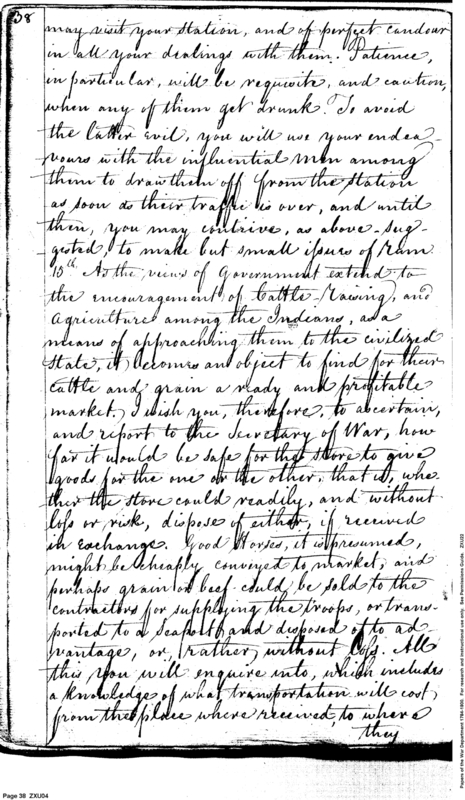 38
may visit your station, and of perfect candour
in all your dealings with them. Patience,
in particular, will be requisite, and caution,
when any of them get drunk. To avoid
the latter evil, you will use your endea-
vours with the influential men among
them to draw them off from the station
as soon as their traffic is over, and until
then, you may contrive, as above sug-
gested, to make but small issues of rum
13th. As the views of Government extend to
the encouragement of Cattle-raising, and
Agriculture among the Indians, as a
means of approaching them to the civilized
State, it becomes an object to find for their
cattle and grain a ready and profitable
market. I wish you, therefore, to ascertain,
and report to the Secretary of War, how
far it would be safe for the store to give
goods for the one or the other, that is, whe-
ther the store could readily, and without
loss or risk, dispose of either, if received
in exchange. Good Horses, it is presumed,
might be cheaply conveyed to market, and
perhaps grain or beef could be sold to the
contractors for supplying the troops, or trans-
ported to a Seaport and disposed of to ad
vantage, or, rather, without loss. All
this you will enquire into, which includes
a knowledge of what transportation will cost,
from the place where received, to where
they
Page 38 ZXU04
Papers of the War Department 1784-1800. For research and instructional use only. See Permissions Guide. ZXU02